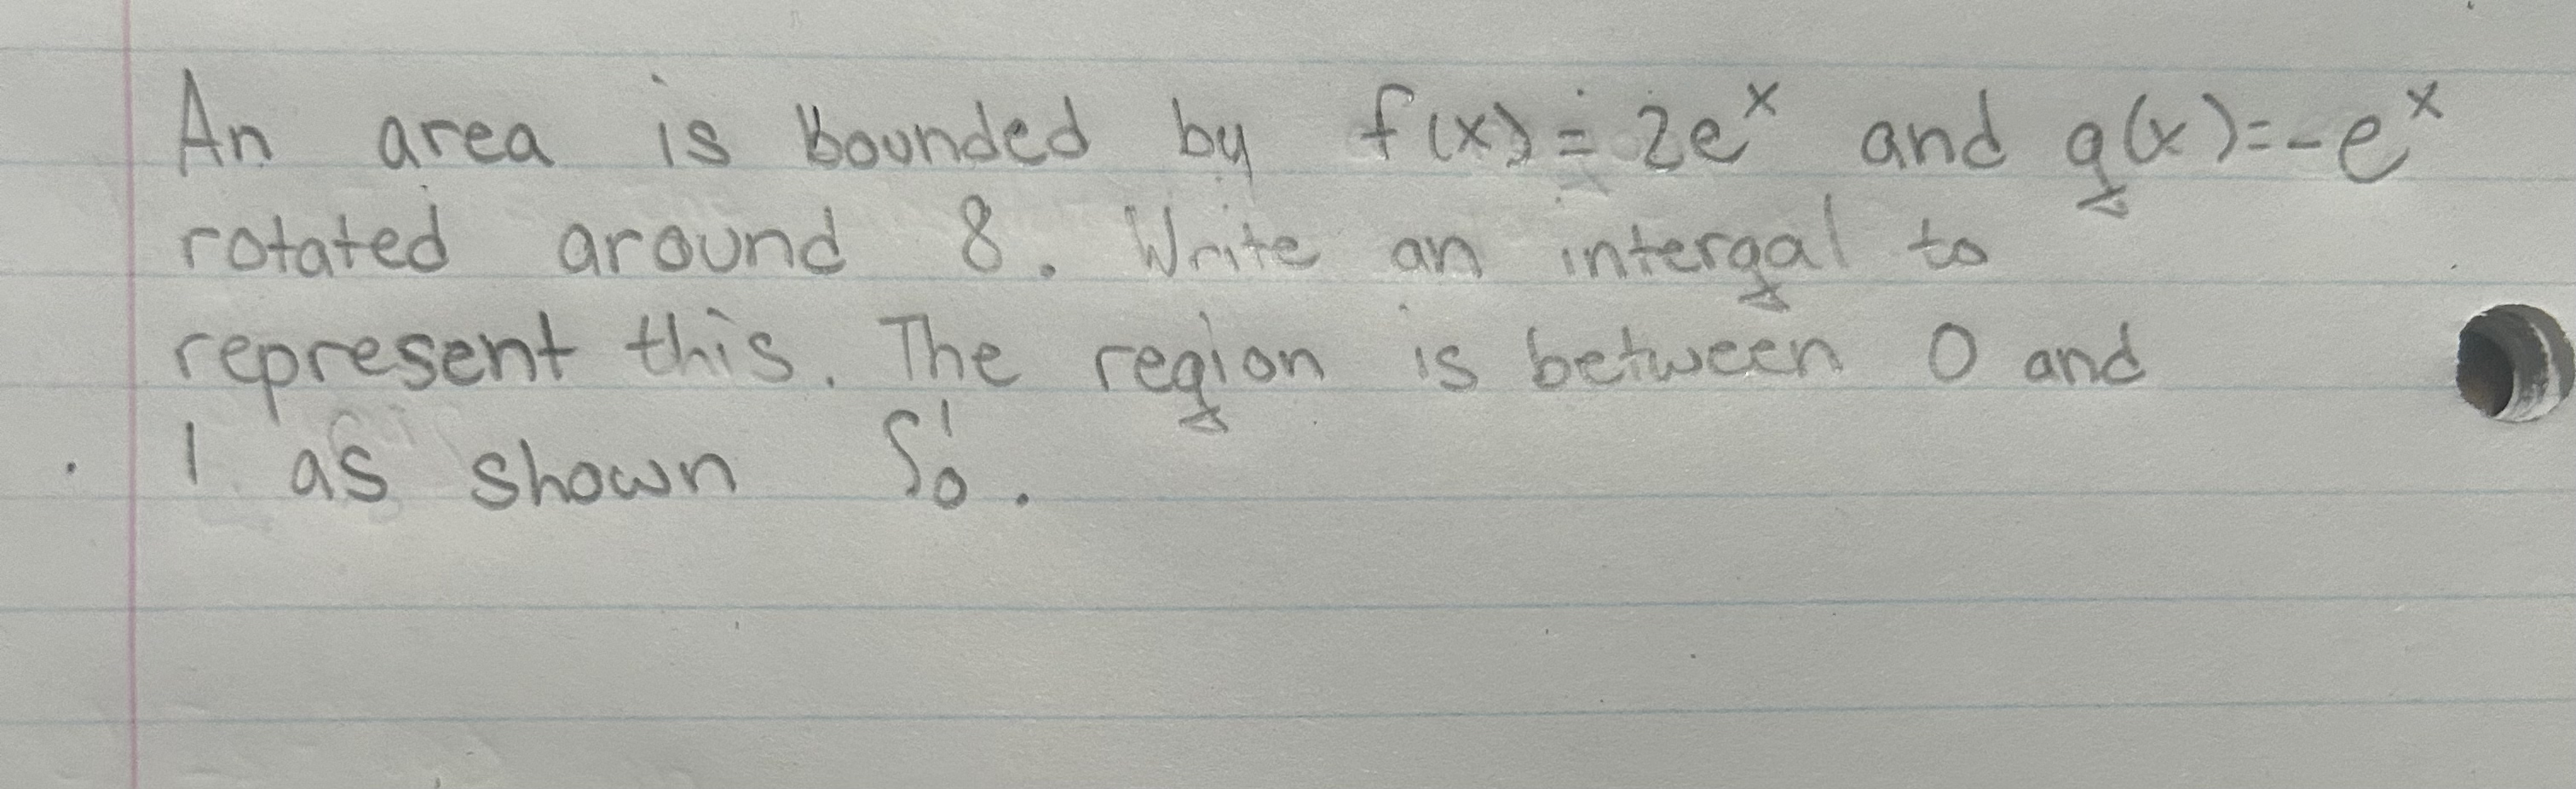 An area is bounded by f(x) = 2e^x and g(x)=-e^x
rotated around 8. Write an intergal to
represent this. The region is between 0 and
1 as shown ∫₀¹.